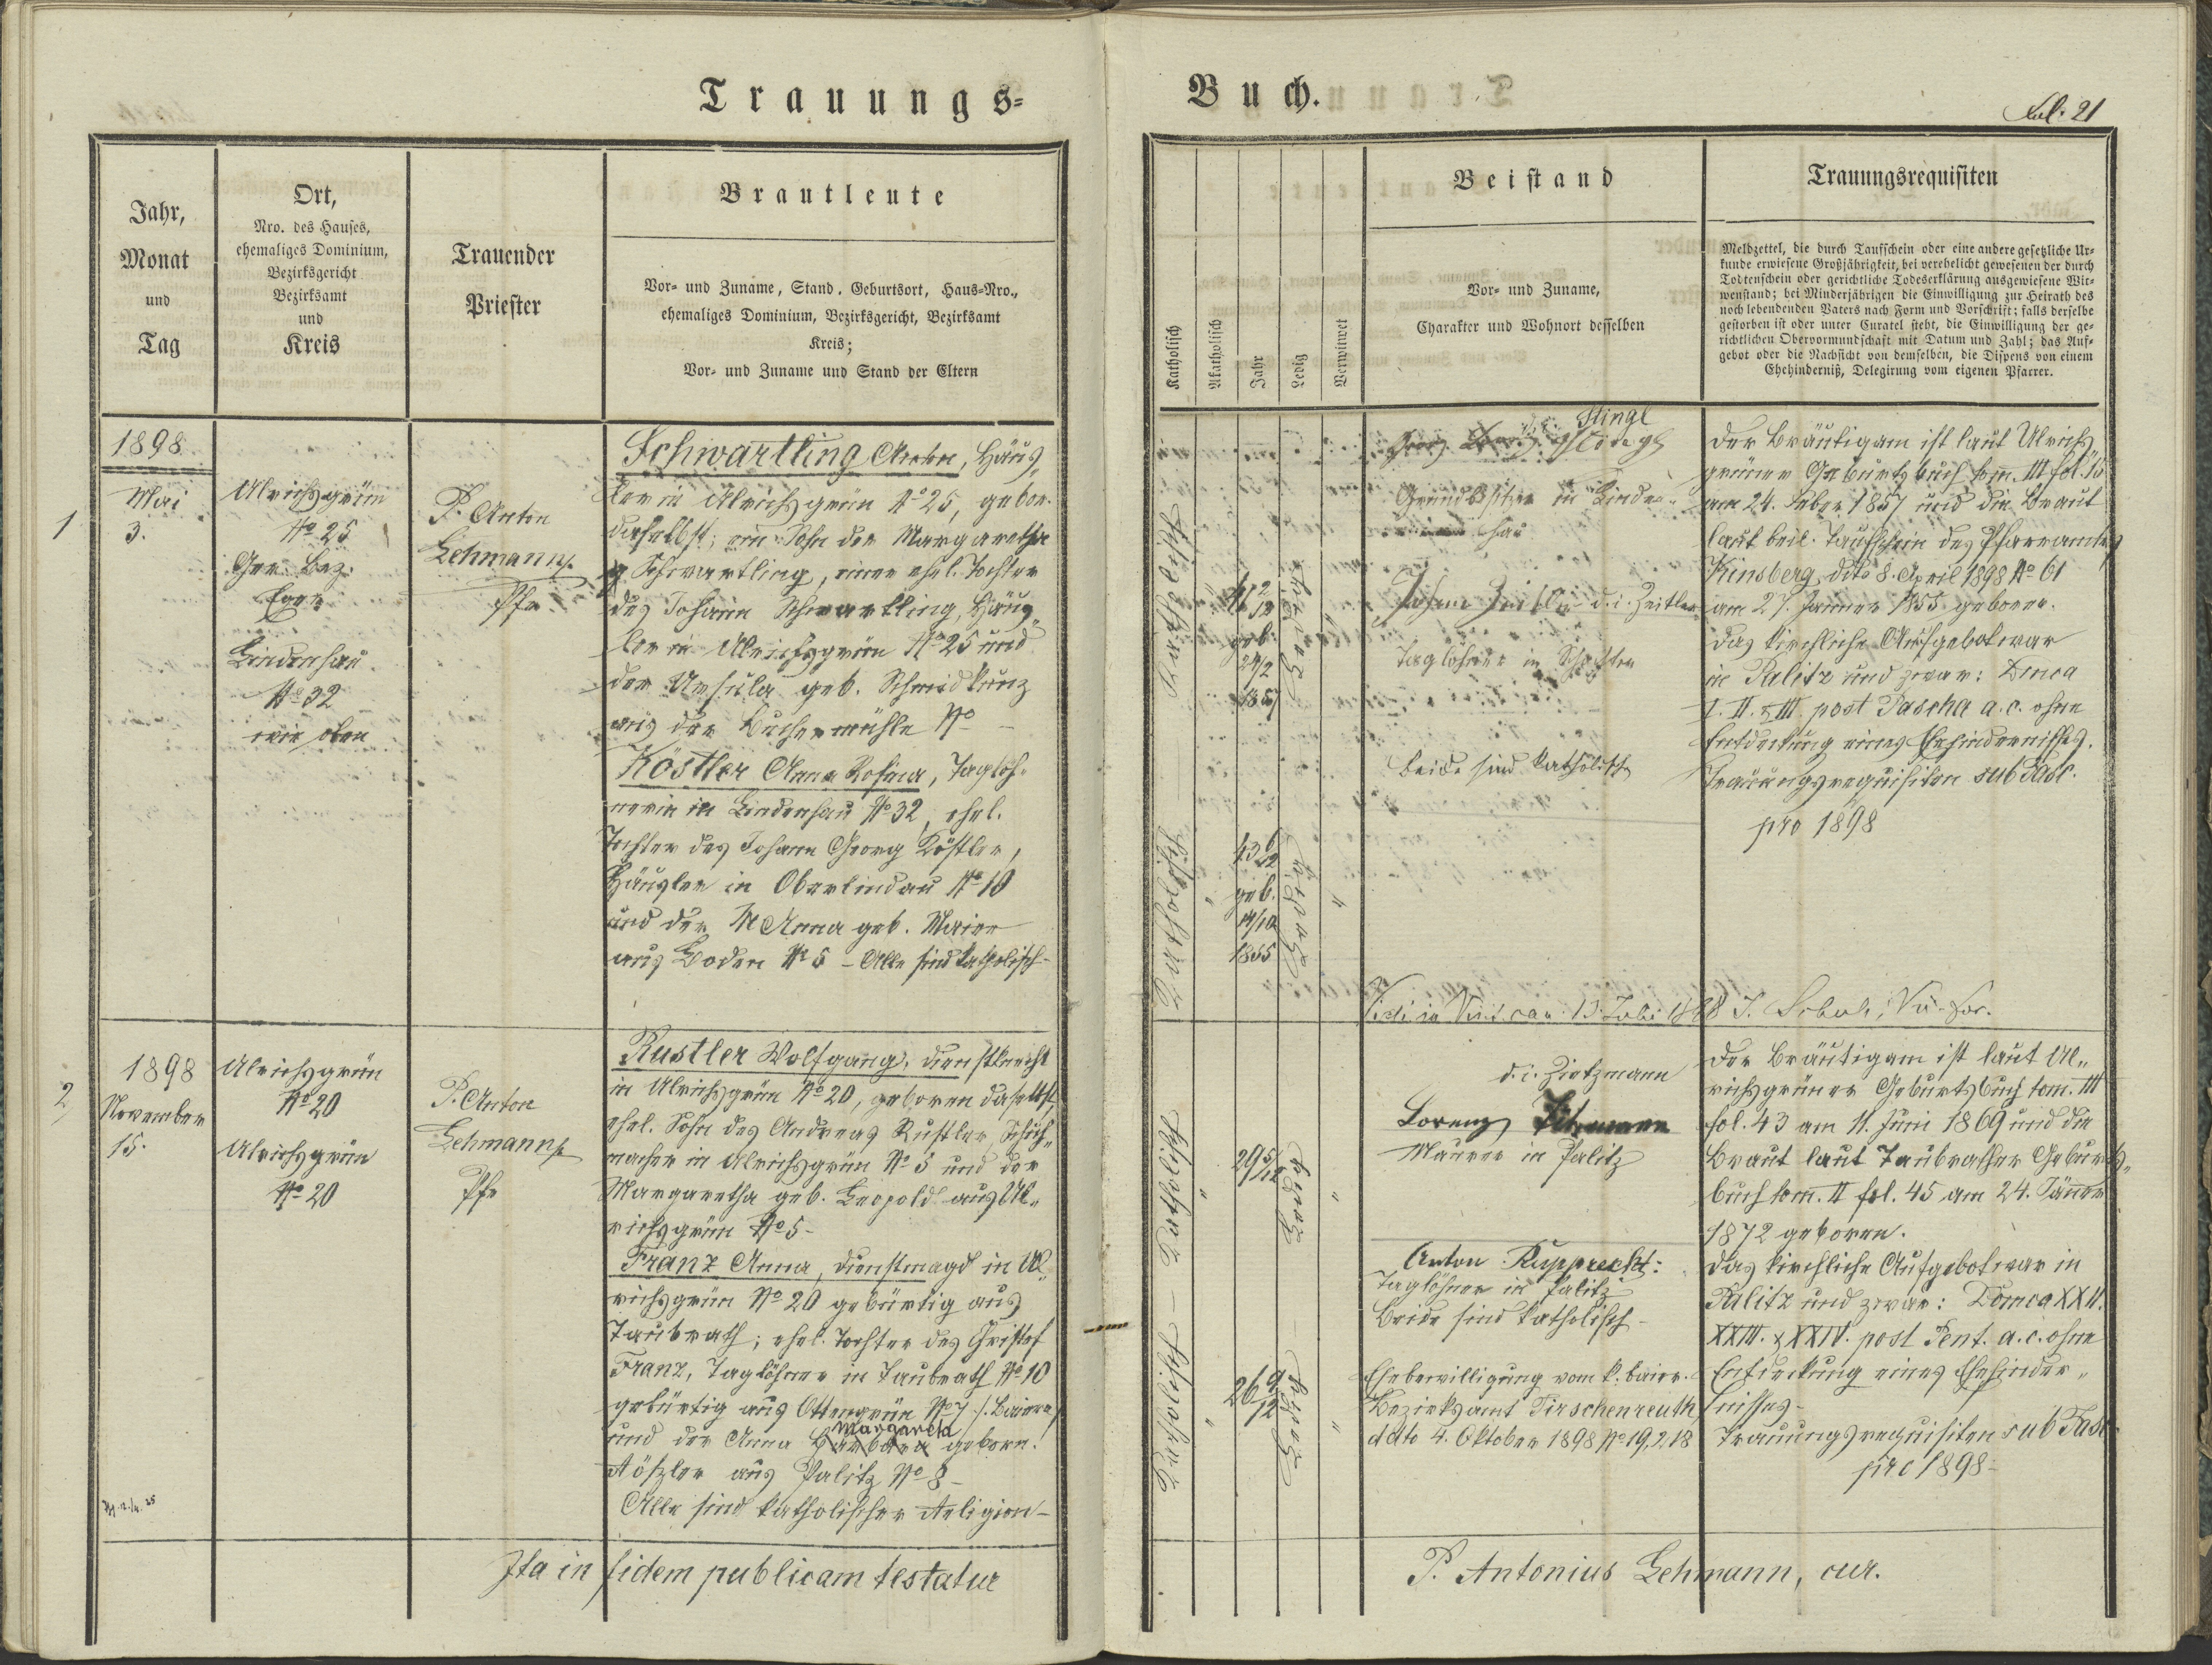 Trauungs-
Buch.
Fol. 21
Jahr,
Monat
und
Tag
Ort,
Nro. des Hauses,
ehemaliges Dominium,
Bezirksgericht
Bezirksamt
und
Kreis
Trauender
Priester
Brautleute
Vor- und Zuname, Stand, Geburtsort, Haus-Nro.,
ehemaliges Dominium, Bezirksgericht, Bezirksamt
Kreis;
Vor- und Zuname und Stand der Eltern
Katholisch
Akatholisch
Jahr
Ledig
Verwitwet
Beistand
Vor- und Zuname,
Charakter und Wohnort desselben
Trauungsrequisiten
Meldzettel, die durch Taufschein oder eine andere gesetzliche Ur-
kunde erwiesene Großjährigkeit, bei verehelicht gewesenen der durch
Todtenschein oder gerichtliche Todeserklärung ausgewiesene Wit-
wenstand; bei Minderjährigen die Einwilligung zur Heirath des
noch lebendenden Vaters nach Form und Vorschrift; falls derselbe
gestorben ist oder unter Curatel steht, die Einwilligung der ge-
richtlichen Obervormundschaft mit Datum und Zahl; das Auf-
gebot oder die Nachsicht von demselben, die Dispens von einem
Ehehinderniß, Delegirung vom eigenen Pfarrer.
1
1898
Mai
3.
Ulrichsgrün
No 25
Ger. Bez.
Eger
Lindenhau
No 32
wie oben
P. Anton
Lehmann
Pfr
Schwartling Anton, Häus-
ler in Ulrichsgrün No 25, gebor.
daselbst; ein Sohn der Margaretha
Schwartling, einer ehel. Tochter
des Johann Schwartling, Häus-
ler in Ulrichsgrün No 25 und
der Ursula geb. Schmidkunz
aus der Buchermühle No –
Köstler Anna Rosina, Taglöh-
nerin in Lindenhau No 32, ehel.
Tochter des Johann Georg Köstler,
Häusler in Oberlindau No 10
und der M Anna geb. Maier
aus Boden No 5 – Alle sind katholisch –
Katholisch
41 2/12
geb.
24/2
1857
ledig
Katholisch
"
43
geb.
1855
ledig
"
Stingl
Grundbesitzer in Linden-
hau
Johann Zeitler d. i. Zeitler
Taglöhner in Schossen
beide sind katholisch
Der Bräutigam ist laut Ulrichs-
grüner Geburtsbuch tom. III fol. 
am 24. Feber 1857 und die Braut
laut beil. Taufschein des Pfarramtes
Kinsberg dto 8. April 1898 No 61
am 27. Jänner 1855 geboren.
Das kirchliche Aufgebot war
in Palitz und zwar: Domca
I. II. & III. post Pascha a. c. ohne
Entdeckung eines Ehehindernisses.
Trauungsrequisiten sub Fasc.
pro 1898
Vidi in Visit. can. 13. Juli 1898 J.
2
1898
November
15.
Ulrichsgrün
No 20
Ulrichsgrün
No 20
P. Anton
Lehmann
Pfr
Rustler Wolfgang, Dienstknecht
in Ulrichsgrün No 20, geboren daselbst,
ehel. Sohn des Andreas Rustler, Schuh-
macher in Ulrichsgrün No 5 und der
Margaretha geb. Leopold aus Ul-
richsgrün No 5 –
Franz Anna, Dienstmagd in Ul-
richsgrün No 20 gebürtig aus
Taubrath; ehel. Tochter des Christof
Franz, Taglöhner in Taubrath No 10
gebürtig aus Ottengrün No 7 /: Baiern
Margareta
und der Anna Barbara geborn.
Rößler aus Palitz No 8 –
Alle sind katholischer Religion –
Katholisch –
"
29 5/12
ledig
"
Katholisch –
"
26 9/12
ledig
"
d. i. Zietzmann
Lorenz
Maurer in Palitz
Anton Rupprecht:
Taglöhner in Palitz
Beide sind katholisch –
Ehebewilligung vom k. baier.
Bezirksamt Tirschenreuth
ddto 4. Oktober 1898 No 19,218
Der Bräutigam ist laut Ul-
richsgrüner Geburtsbuch tom. III
fol. 43 am 11. Juni 1869 und die
Braut laut Taubrather Geburts-
buch tom. II fol. 45 am 24. Jänner
1872 geboren.
Das kirchliche Aufgebot war in
Palitz und zwar: Domca XXII.
XXIII. & XXIV. post Pent. a. c. ohne
Entdeckung eines Ehehinder-
nisses –
Trauungsrequisiten sub Fasc.
pro 1898 –
Ita in fidem publicam testatur
P. Antonius Lehmann, cur.